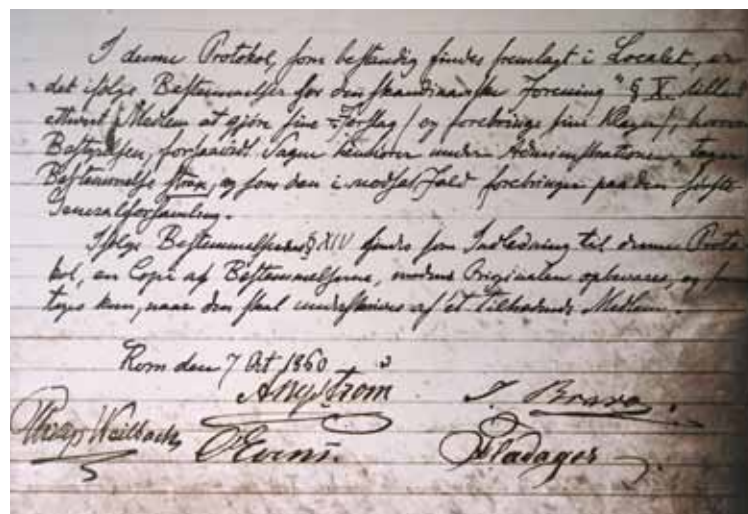 I denne Protokol, som bestandig findes fremlagt i Localet, er
det ifølge Bestemmelser for den skandinaviske Forening" § X tilladt
ethvert Medlem at gjøre sine Forslag / og forebringe sine Klager /, hvorom
Bestyrelsen, forsaavidt Sagen henhører under Administrationen, tager
Bestemmelse strax, og som den i modsat Fald forebringer paa den første
Generalforsamling.
Ifølge Bestemmelsernes § XIV findes som Indledning til denne Proto
kol, en Copi af Bestemmelserne, medens Originalen opbevares, og frem
tages kun, naar den skal underskrives af et tiltrædende Medlem.
Rom den 7 Oct 1860
A Nyström J. Bravo.
Philip Weilbach O Evens. Fladager